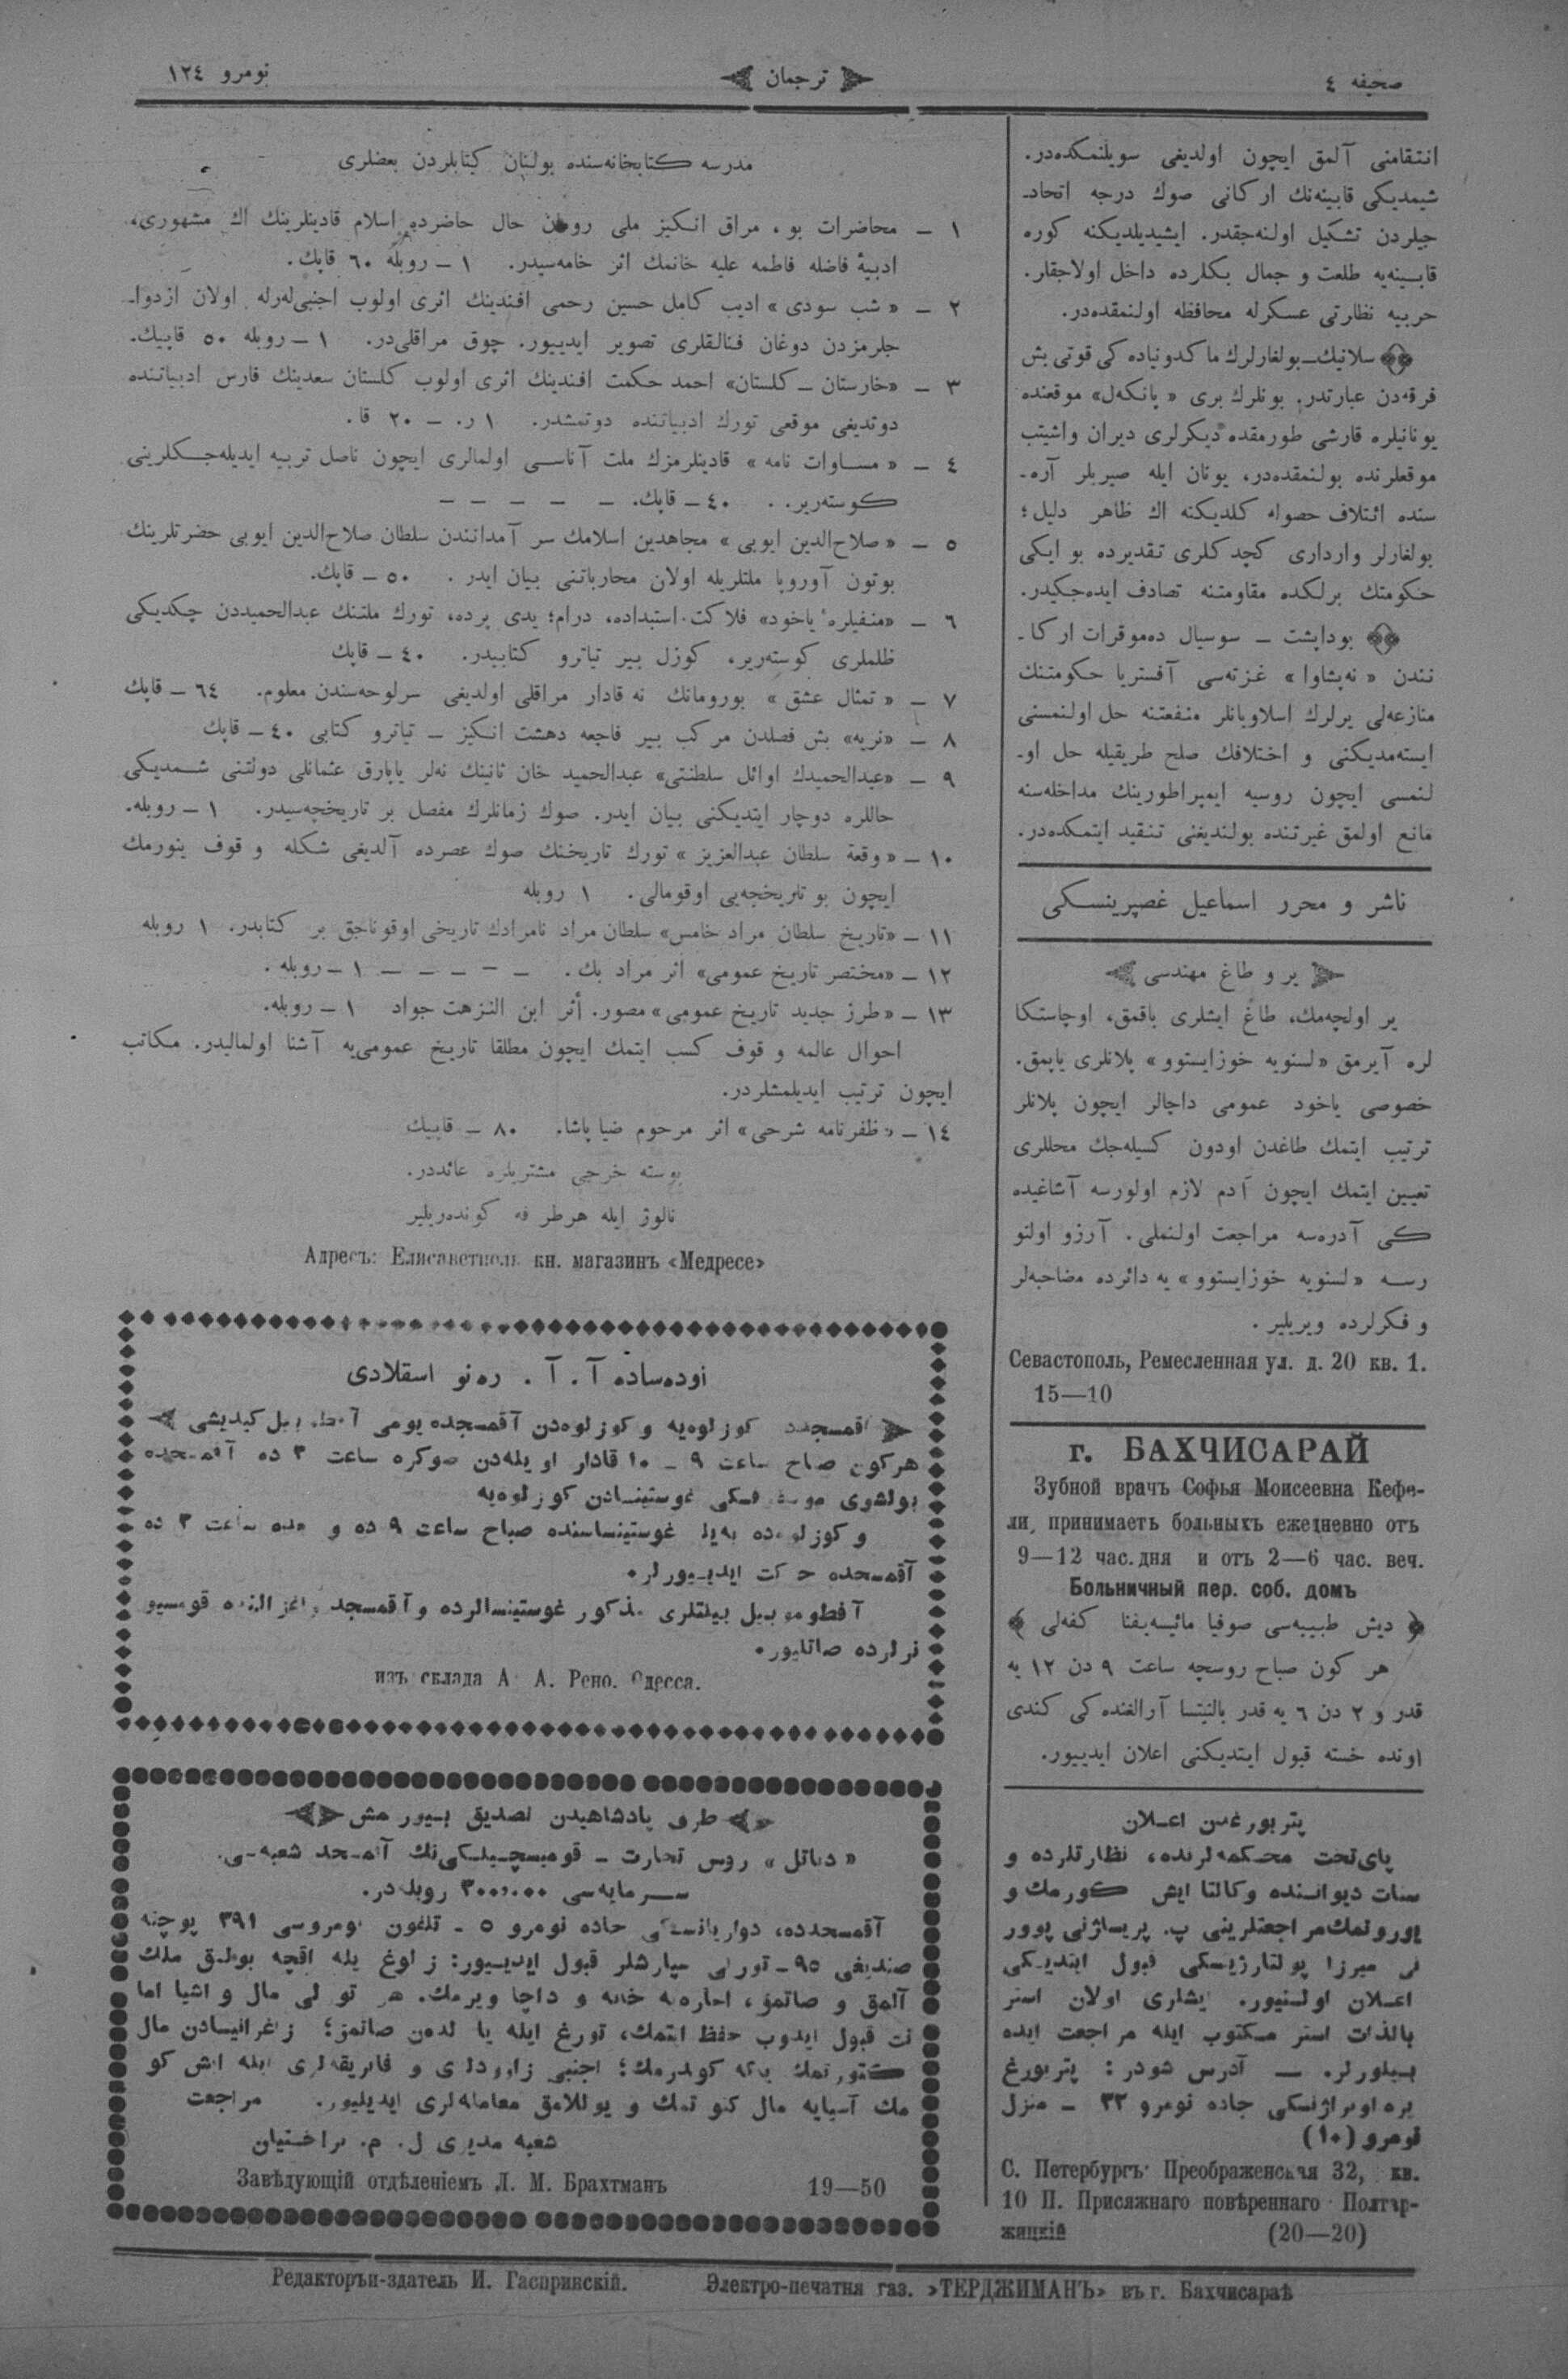 صحیفه ٤
ترجمان
نومرو ١٢٤
انتقامنی آلمق ایچون اولدیغی سویلنمکده‌در.
شیمدیکی قابینه‌نك ارکانی صوك درجه اتحاد-
جیلردن تشکیل اولنه‌جقدر. ایشیدیلدیکنه کوره
قابینه‌یه طلعت و جمال بکلرده داخل اولاجقلر.
حربیه نظارتی عسکرله محافظه اولنمقده‌در.
سلانیك—بولغارلرك ماکدونیاده کی قوتی بش
فرقه‌دن عبارتدر. بونلرك بری «پانکه‌ل» موقعنده
یونانیلره قارشی طورمقده دیکرلری دیران واشیتب
موقعلرنده بولنمقده‌در، یونان ایله صیربلر آره-
سنده ائتلاف حصوله کلدیکنه اك ظاهر دلیل؛
بولغارلر وارداری کچدکلری تقدیرده بو ایکی
حکومتك برلکده مقاومتنه تصادف ایده‌جکیدر.
بوداپشت — سوسیال ده‌موقرات ارکا-
نندن «نه‌پشاوا» غزته‌سی آفستریا حکومتنك
منازعه‌لی یرلرك اسلاویانلر منفعتنه حل اولنمسنی
ایسته‌مدیکنی و اختلافك صلح طریقیله حل او-
لنمسی ایچون روسیه ایمپراطورینك مداخله‌سنه
مانع اولمق غیرتنده بولندیغنی تنقید ایتمکده‌در.
ناشر و محرر اسماعیل غصپرینسکی
یر و طاغ مهندسی
یر اولچه‌مك، طاغ ایشلری باقمق، اوچاستکا
لره آیرمق «لسنویه خوزایستوو» پلانلری یاپمق.
خصوصی یاخود عمومی داچالر ایچون پلانلر
ترتیب ایتمك طاغدن اودون کسیله‌جك محللری
تعیین ایتمك ایچون آدم لازم اولورسه آشاغیده
کی آدره‌سه مراجعت اولنملی. آرزو اولنو
رسه «لسنویه خوزایستوو» یه دائرده مضاحبه‌لر
و فکرلرده ویریلیر.
Севастополь, Ремесленная ул. д. 20 кв. 1.
15—10
г. БАХЧИСАРАЙ
Зубной врачъ Софья Моисеевна Кефе-
ли, принимаетъ больныхъ ежедневно отъ
9—12 час. дня и отъ 2—6 час. веч.
Больничный пер. соб. домъ
دیش طبیبه‌سی صوفیا مائیسه‌یفنا کفه‌لی
هر کون صباح روسچه ساعت ٩ دن ١٢ یه
قدر و ٢ دن ٦ یه قدر بالنیتسا آرالغنده کی کندی
اونده خسته قبول ایتدیکنی اعلان ایدییور.
پتربورغدن اعلان
پای‌تخت محکمه‌لرنده، نظارتلرده و
سنات دیواننده وکالتا ایش کورمك و
یوروتمك مراجعتلرینی پ. پریساژنی پوور
نی میرزا پولتارژیتسکی قبول ایتدیکی
اعلان اولنیور. ایشلری اولان استر
بالذات استر مکتوب ایله مراجعت ایده
بیلورلر. — آدرس شودر: پتربورغ
پره‌اوبراژنسکی جاده نومرو ٣٢ — منزل
نومرو (١٠)
С. Петербургъ Преображенская 32, кв.
10 П. Присяжнаго повѣреннаго Полтар-
жицкій (20—20)
مدرسه کتابخانه‌سنده بولنان کتابلردن بعضلری
١ — محاضرات بو، مراق انکیز ملی رومان حال حاضرده اسلام قادینلرینك اك مشهوری،
ادبیهٔ فاضله فاطمه علیه خانمك اثر خامه‌سیدر. ١ — روبله ٦٠ قاپك.
٢ — «شب سودی» ادیب کامل حسین رحمی افندینك اثری اولوب اجنبی‌لەرله اولان ازدوا-
جلرمزدن دوغان فنالقلری تصویر ایدییور. چوق مراقلی‌در. ١ — روبله ٥٠ قاپیك.
٣ — «خارستان — کلستان» احمد حکمت افندینك اثری اولوب کلستان سعدینك فارس ادبیاتنده
دوتدیغی موقعی تورك ادبیاتنده دوتمشدر. ١ ر. — ٢٠ قا.
٤ — «مساوات نامه» قادینلرمزك ملت آناسی اولمالری ایچون ناصل تربیه ایدیله‌جکلرینی
کوسته‌ریر. . ٤٠ — قاپك. — — — — —
٥ — «صلاح‌الدین ایوبی» مجاهدین اسلامك سر آمدانندن سلطان صلاح‌الدین ایوبی حضرتلرینك
بوتون آوروپا ملتلریله اولان محارباتنی بیان ایدر. ٥٠ — قاپك.
٦ — «منفیلر» یاخود» فلاکت استبداده، درام؛ یدی پرده، تورك ملتنك عبدالحمیددن چکدیکی
ظلملری کوسته‌ریر، کوزل بیر تیاترو کتابیدر. ٤٠ — قاپك
٧ — «تمثال عشق» بورومانك نه قادار مراقلی اولدیغی سرلوحه‌سندن معلوم. ٦٤ — قاپك
٨ — «نریه» بش فصلدن مرکب بیر فاجعه دهشت انکیز — تیاترو کتابی ٤٠ — قاپك
٩ — «عبدالحمیدك اوائل سلطنتی» عبدالحمید خان ثانینك نه‌لر یاپارق عثمانلی دولتنی شمدیکی
حاللره دوچار ایتدیکنی بیان ایدر. صوك زمانلرك مفصل بر تاریخچه‌سیدر. ١ — روبله.
١٠ — «وقعهٔ سلطان عبدالعزیز» تورك تاریخنك صوك عصرده آلدیغی شکله و قوف
ایچون بو تاریخجه‌یی اوقومالی. ١ روبله
١١ — «تاریخ سلطان مراد خامس» سلطان مراد نامرادك تاریخی اوقوناجق بر کتابدر. ١ روبله
١٢ — «مختصر تاریخ عمومی» اثر مراد بك. — — — — — ١ — روبله.
١٣ — «طرز جدید تاریخ عمومی» مصور. أثر ابن النزهت جواد ١ — روبله.
احوال عالمه و قوف کسب ایتمك ایچون مطلقا تاریخ عمومی‌یه آشنا اولمالیدر. مکاتب
ایچون ترتیب ایدیلمشلردر.
١٤ — «ظفرنامه شرحی» اثر مرحوم ضیا پاشا. ٨٠ — قاپیك
پوسته خرجی مشتریلره عائددر.
نالوژ ایله هرطرفه کونده‌ریلیر
Адресъ: Елисаветполь кн. магазинъ «Медресе»
اوده‌ساده آ. آ. ره‌نو اسقلادی
آقمسجددن کوزلوه‌یه و کوزلوه‌دن آقمسجده یومی کیدیشی
هرکون صباح ساعت ٩ — ١٠ قادار اویله‌دن صوکره ساعت ٣ ده آقمسجده
بولشوی غوستینسادن کوزلوه‌یه
و کوزلوه‌ده غوستینساسنده صباح ساعت ٩ ده و ساعت ٣ ده
آقمسجده حرکت ایدییورلر.
آفطوموبیل بیلتلری مذکور غوستینسالرده و آقمسجد قومسیو
نرلرده صاتلیور.
изъ склада А. А. Рено. Одесса.
طرف پادشاهیدن تصدیق بیورمش
روس تجارت — آقمسجد شعبه‌سی.
سرمایه‌سی ٣٠٠،٠٠٠ روبله‌در.
آقمسجدده، جاده نومرو ٥ — تلفون نومروسی ٣٩١ پوچته
صندیغی ٩٥ — تورلی سپارشلر قبول ایدییور: اقچه بولمق ملك
آلمق و صاتمق، اجاره‌یه خانه و داچا ویرمك. هر تورلی مال و اشیا اما
نت قبول ایدوب حفظ ایتمك، تورغ ایله یا صاتمق؛ زاغرانیسادن مال
کتورتمك کوندرمك؛ اجنبی و فابریقه‌لری ایله ایش کو
مال کتورتمك و یوللامق معامله‌لری ایدیلیور. مراجعت
شعبه مدیری ل. م. براختمان
Завѣдующій отдѣленіемъ Л. М. Брахтманъ 19—50
Редакторъ-издатель И. Гаспринскій. Электро-печатня газ. «ТЕРДЖИМАНЪ» въ г. Бахчисараѣ